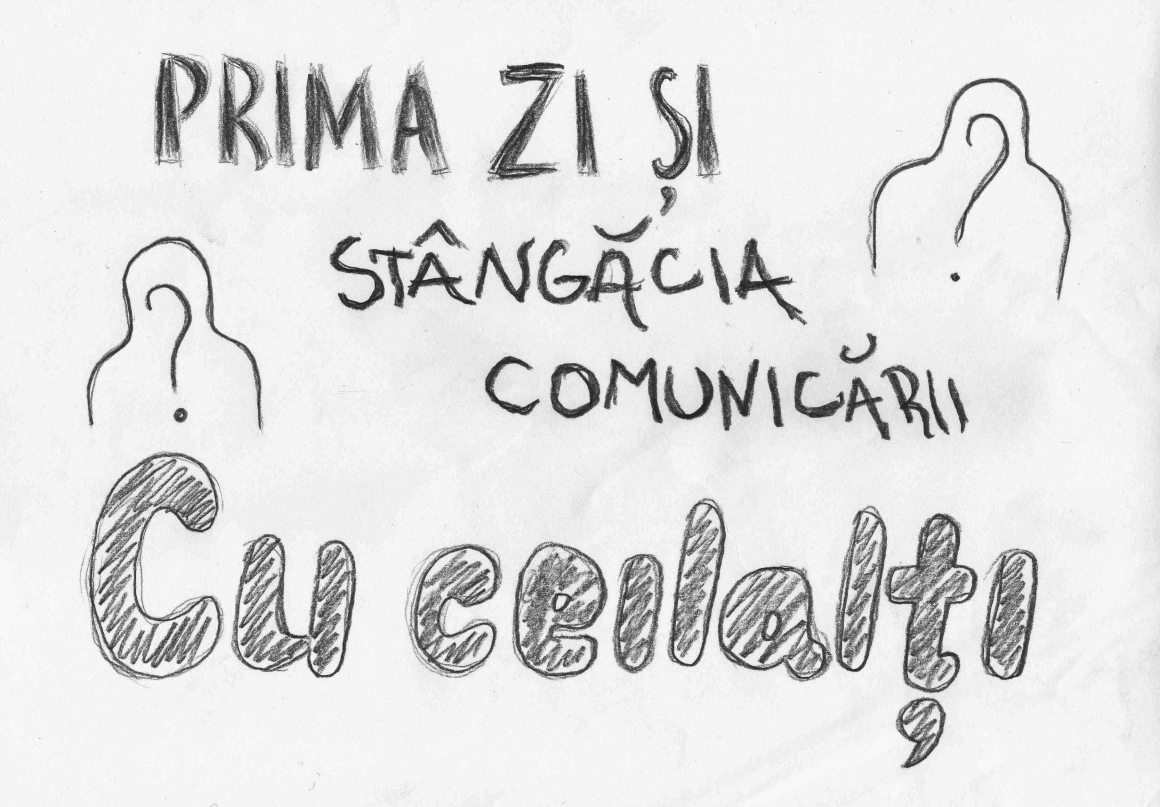 PRIMA ZI ȘI
STÂNGĂCIA
COMUNICĂRII
Cu ceilalți